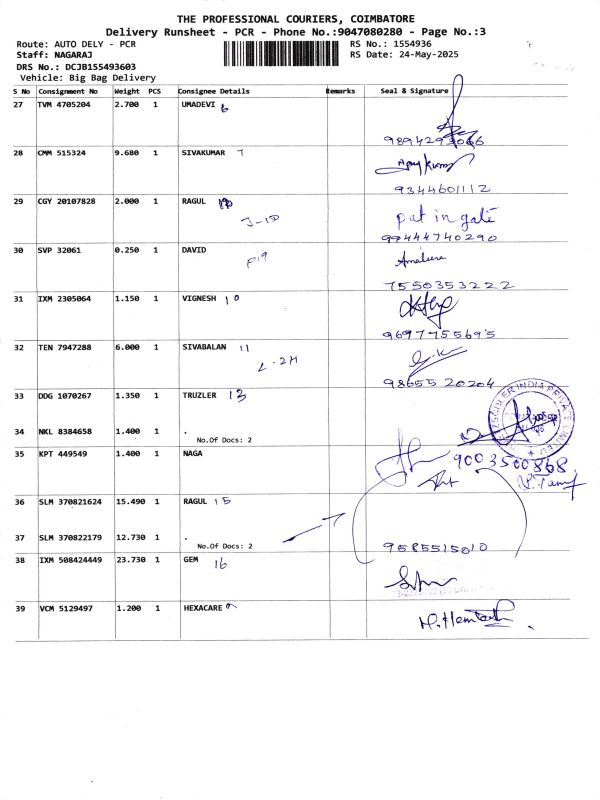 THE PROFESSIONAL COURIERS, COIMBATORE
Delivery Runsheet - PCR - Phone No.:9047080280 - Page No.:3
Route: AUTO DELY - PCR RS No.: 1554936
Staff: NAGARAJ RS Date: 24-May-2025
DRS No.: DCJB155493603
Vehicle: Big Bag Delivery
S No Consignment No Weight PCS Consignee Details Remarks Seal & Signature
27 TVM 4705204 2.700 1 UMADEVI 6
9894293066
28 CMM 515324 9.680 1 SIVAKUMAR 7
9344601112
29 CGY 20107828 2.000 1 RAGUL
J-10 put in gate
99444740290
30 SVP 32061 0.250 1 DAVID
P19
7550353222
31 IXM 2305064 1.150 1 VIGNESH 10
9697755695
32 TEN 7947288 6.000 1 SIVABALAN 11
L-2M
98655 20204
33 DDG 1070267 1.350 1 TRUZLER 13
34 NKL 8384658 1.400 1 .
No.Of Docs: 2
35 KPT 449549 1.400 1 NAGA
9003500868
36 SLM 370821624 15.490 1 RAGUL 15
37 SLM 370822179 12.730 1 .
No.Of Docs: 2 9585515010
38 IXM 508424449 23.730 1 GEM 16
39 VCM 5129497 1.200 1 HEXACARE